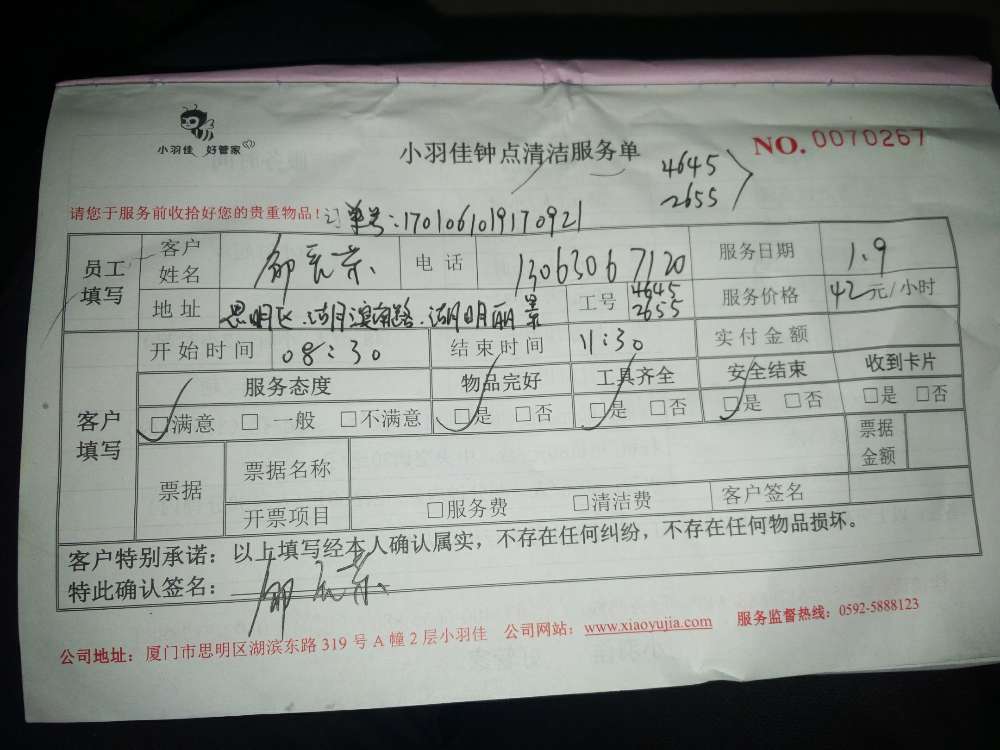 小羽佳 好管家
小羽佳钟点清洁服务单
NO. 0070267
4645
2655
请您于服务前收拾好您的贵重物品!订单号:1701061019170921
员工填写 客户姓名 电话 13063067120 服务日期 1.9
地址 思明区.湖滨南路.湖明丽景 工号 4645 2655 服务价格 42元/小时
客户填写 开始时间 08:30 结束时间 11:30 实付金额
服务态度 物品完好 工具齐全 安全结束 收到卡片
☑满意 □一般 □不满意 ☑是 □否 ☑是 □否 ☑是 □否 □是 □否
票据 票据名称 票据金额
开票项目 □服务费 □清洁费 客户签名
客户特别承诺:以上填写经本人确认属实,不存在任何纠纷,不存在任何物品损坏。
特此确认签名:
公司地址:厦门市思明区湖滨东路319号A幢2层小羽佳 公司网站:www.xiaoyujia.com 服务监督热线:0592-5888123